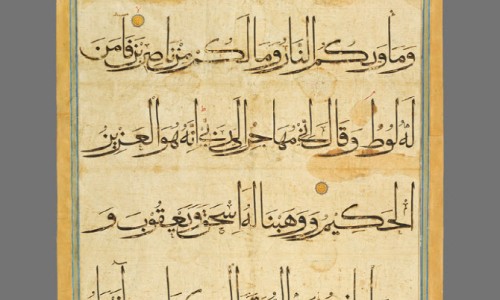 وماويكم النار وما لكم من ناصرين فامن
له لوط وقال انى مهاجر الى ربى انه هو العزيز
الحكيم ووهبنا له اسحق ويعقوب و